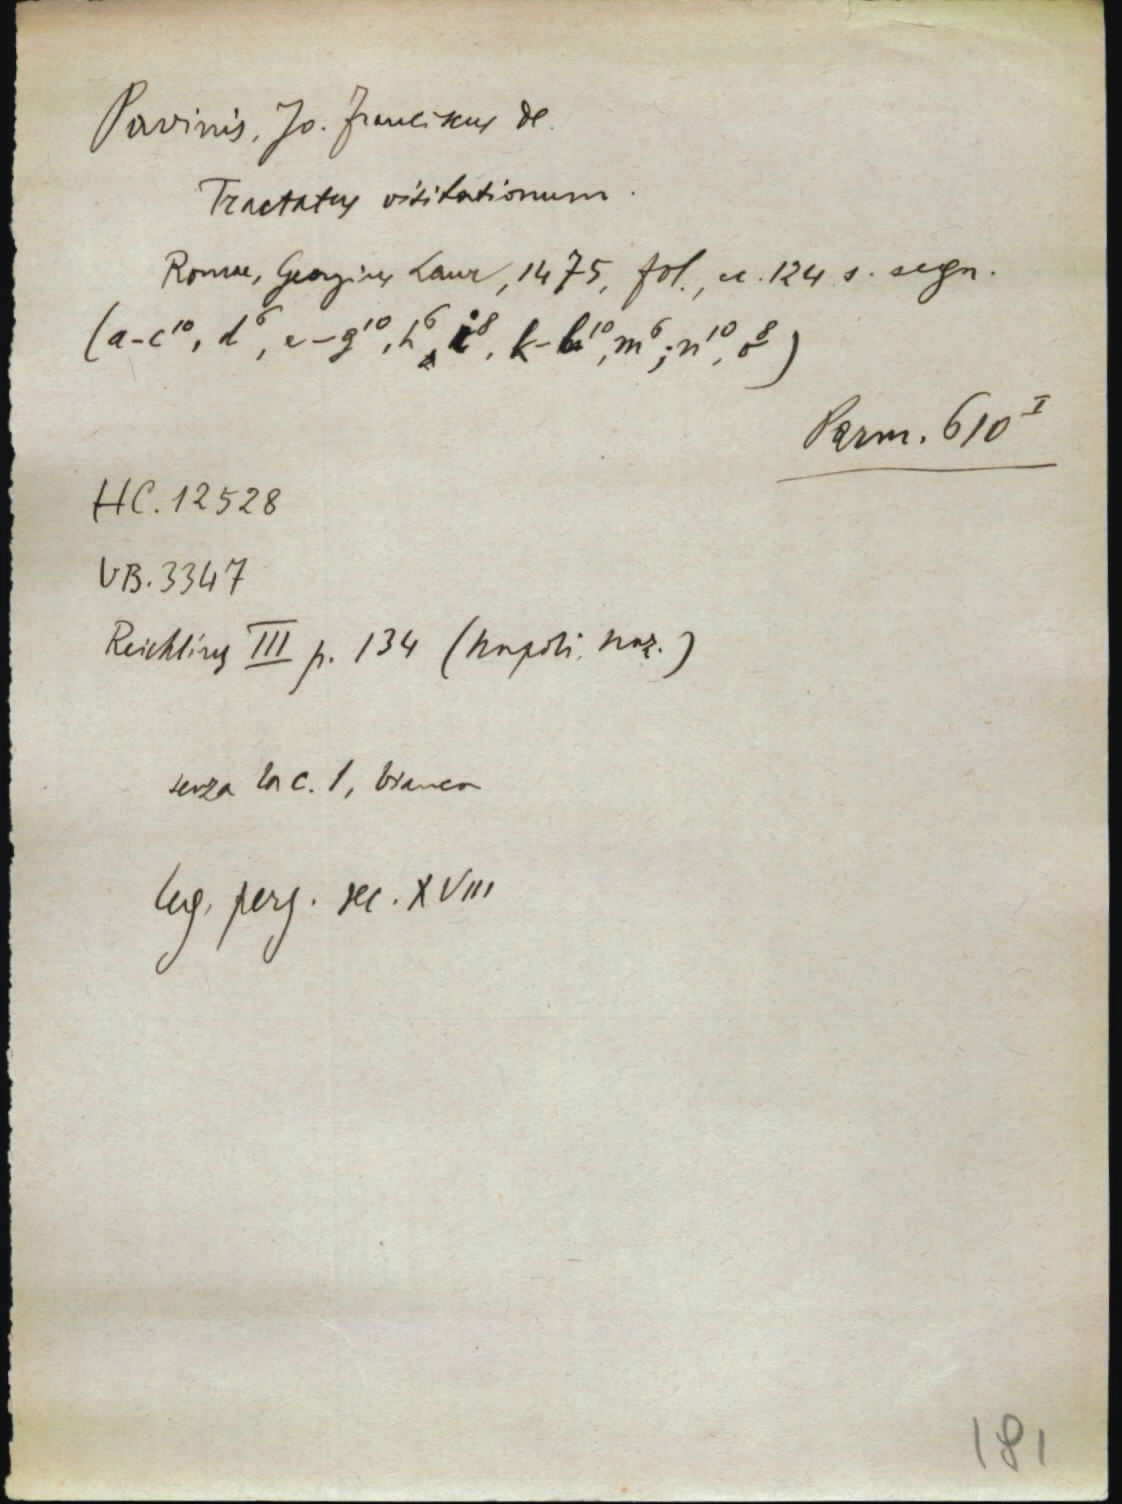 Pavinis, Jo. Franciscus de.
Tractatus visitationum.
Romae, Georgius Laur, 1475, fol., cc. 124 s. segn.
(a-c¹⁰, d⁶, e-g¹⁰, h⁶, i⁸, k-l¹⁰, m⁶; n¹⁰, o⁸)
Parm. 610ᴵ
HC. 12528
VB. 3347
Reichling III p. 134 (Napoli, Naz.)
senza la c. 1, bianca
leg. perg. sec. XVIII
181